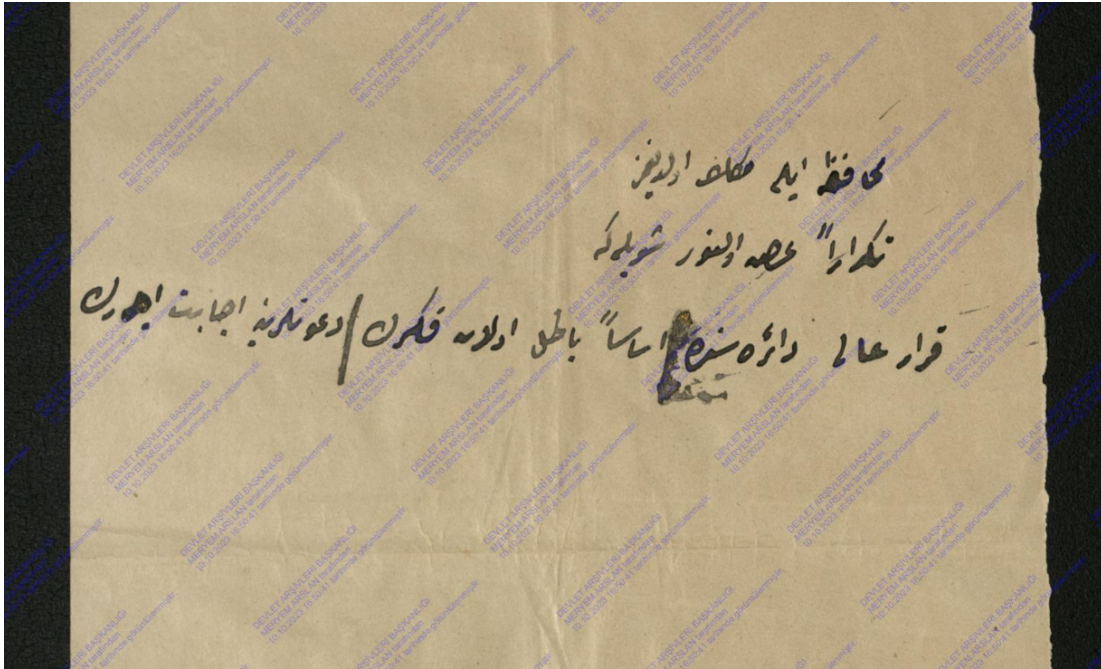 محافظه ايله مكلف اولديغمز
تكراراً عرض اولنور شويله كه
قرار عالى دائره سنده اساساً باطل اولان فكرك / دعوتلرينه اجابت ايدرك
DEVLET ARŞİVLERİ BAŞKANLIĞI
MERYEM ARSLAN tarafından
10.10.2023 16:50:41 tarihinde görüntülenmiştir.